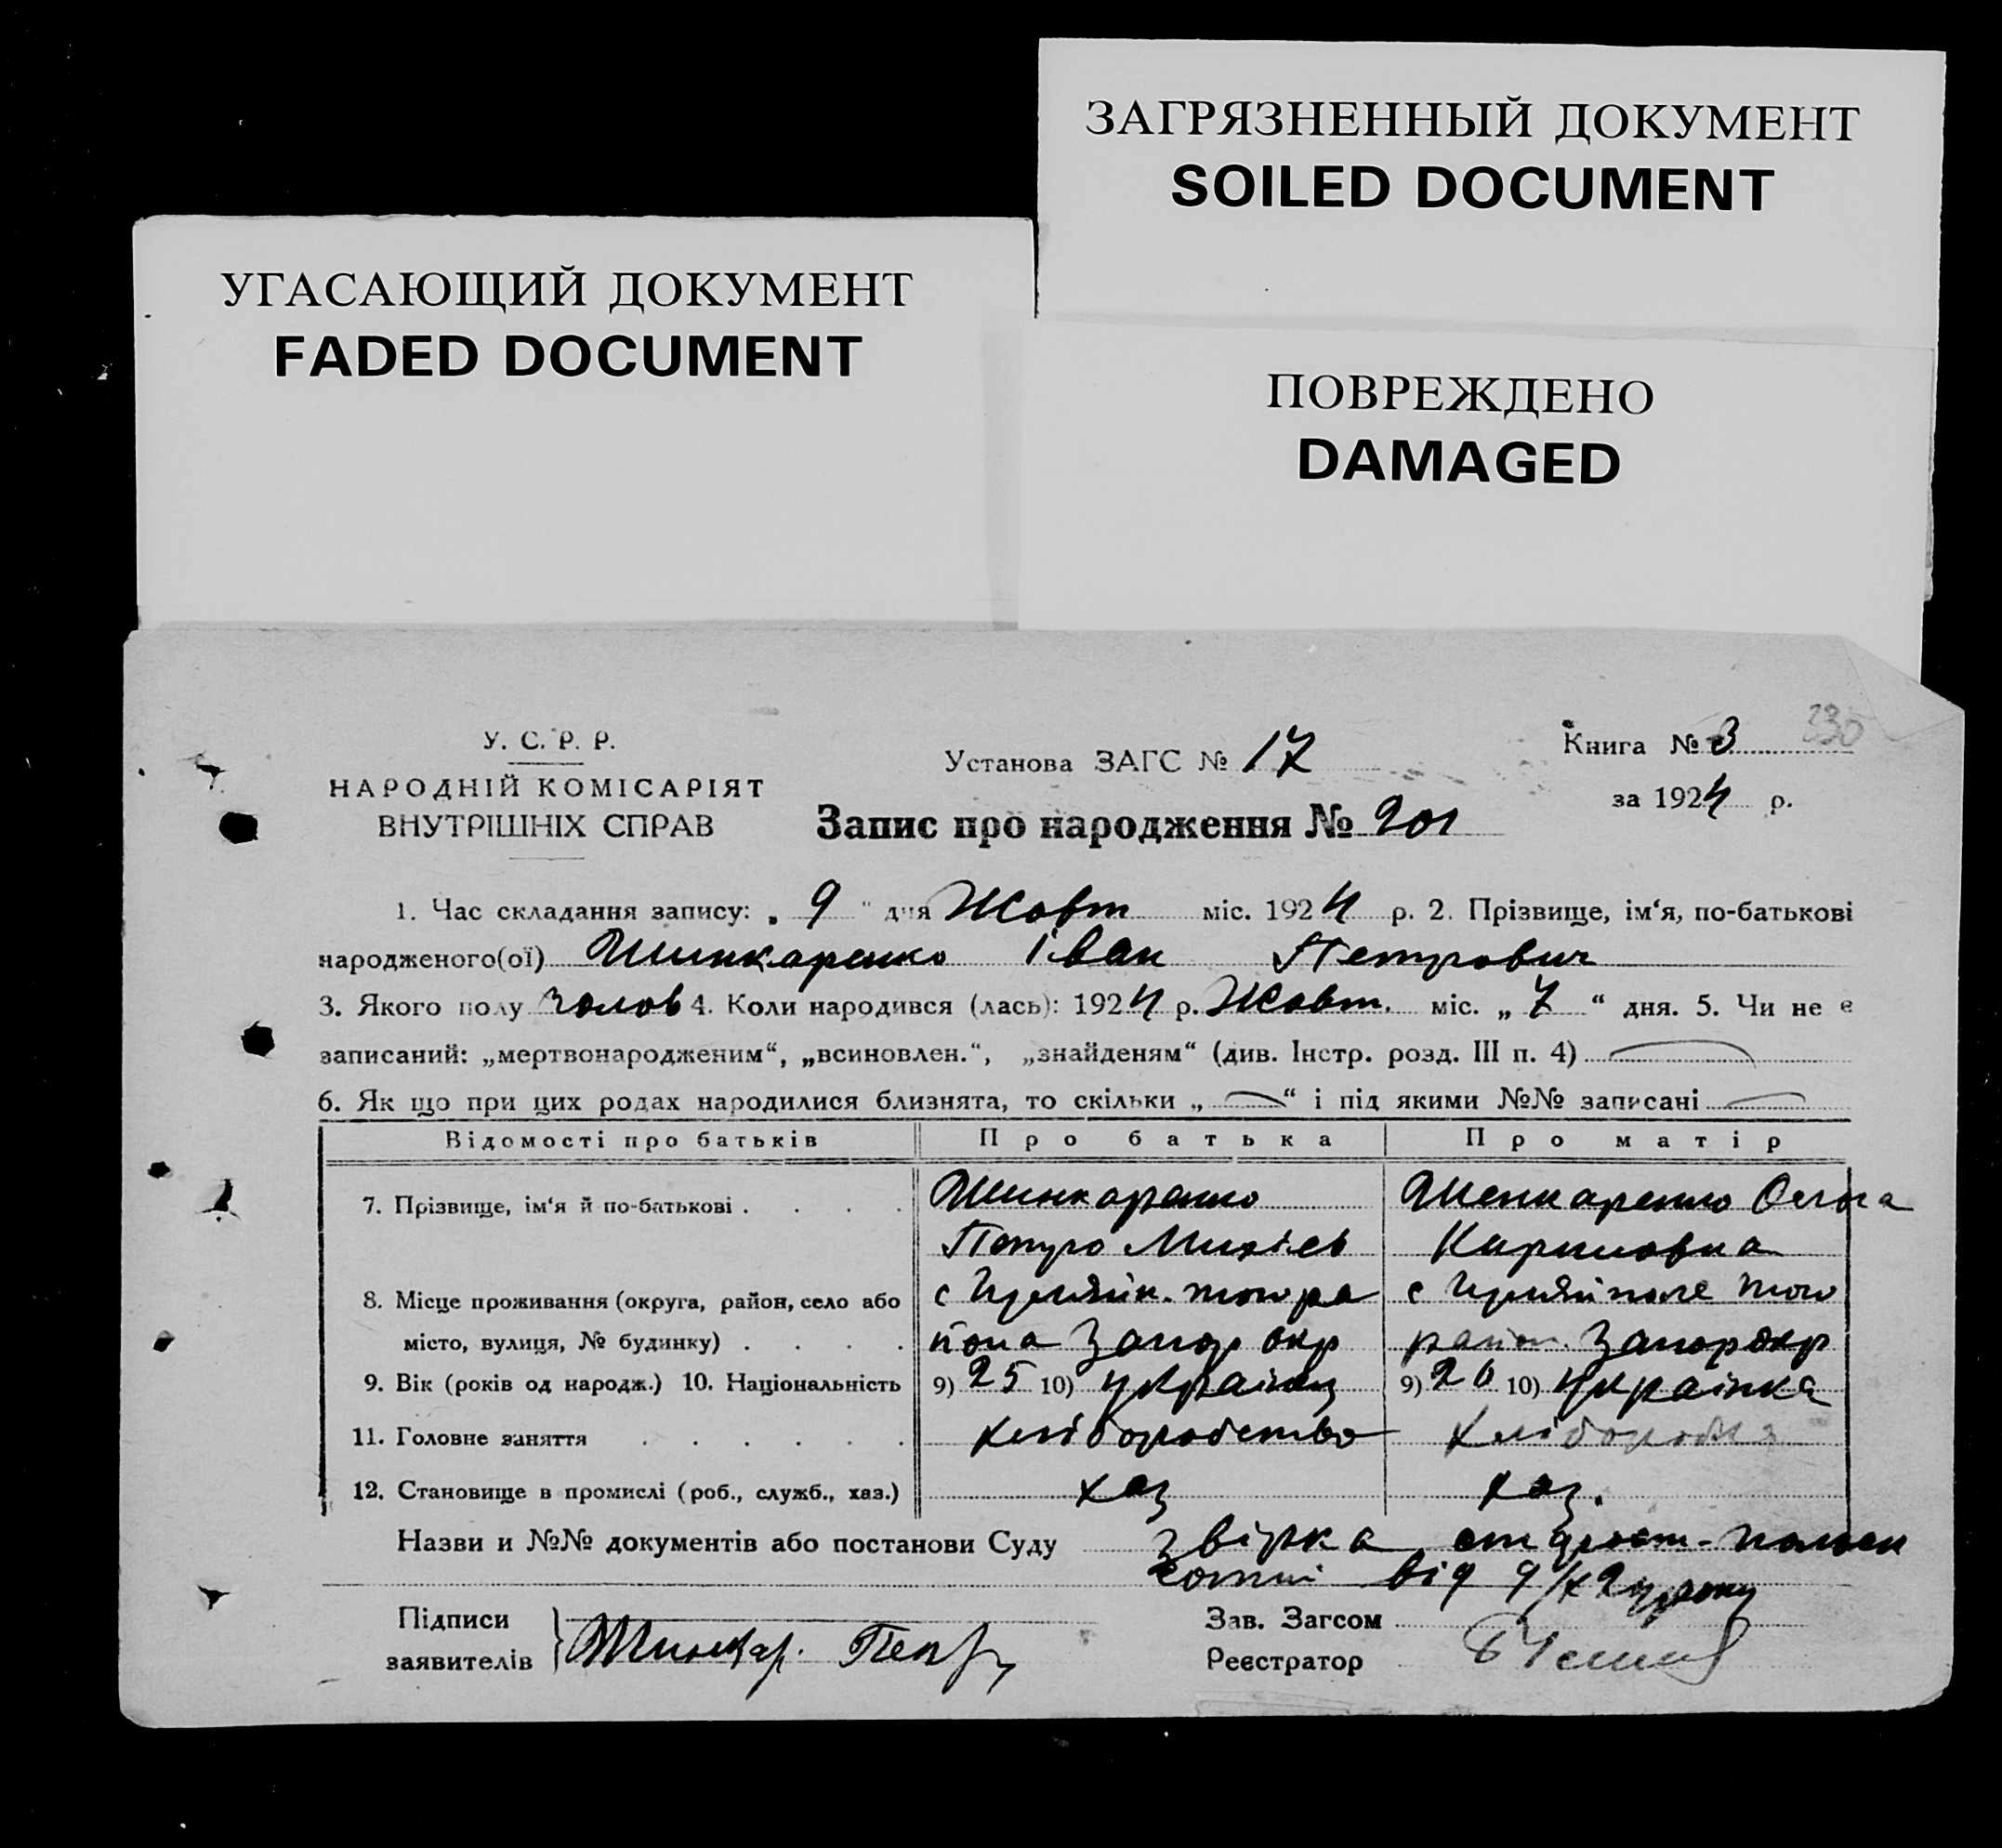 ЗАГРЯЗНЕННЫЙ ДОКУМЕНТ
SOILED DOCUMENT
УГАСАЮЩИЙ ДОКУМЕНТ
FADED DOCUMENT
ПОВРЕЖДЕНО
DAMAGED
230
У. С. Р. Р.
НАРОДНІЙ КОМІСАРІЯТ
ВНУТРІШНІХ СПРАВ
Установа ЗАГС № 17
Книга № 3
за 1924 р.
Запис про народження № 201
1. Час складання запису: „ 9 " дня Жовт міс. 1924 р. 2. Прізвище, ім‘я, по-батькові
народженого(ої) Шинкаренко Іван Петрович
3. Якого полу Чолов 4. Коли народився (лась): 1924 р. Жовт. міс. „ 7 “ дня. 5. Чи не є
записаний: „мертвонародженим“, „всиновлен.“, „знайденям“ (див. Інстр. розд. III п. 4)
6. Як що при цих родах народилися близнята, то скільки „ “ і під якими №№ записані
Відомості про батьків Про батька Про матір
7. Прізвище, ім‘я й по-батькові . . . . Шинкаренко Шенкаренко Олга
Петро Михієв Кириловна
8. Місце проживання (округа, район, село або с того ра с поле того
місто, вулиця, № будинку) . . . . йона Запор окр район. Запор окр
9. Вік (років од народж.) 10. Національність 9) 25 10) українец 9) 26 10) українка
11. Головне заняття . . . . . . хліборобство
12. Становище в промислі (роб., служб., хаз.) хаз хаз.
Назви и №№ документів або постанови Суду звірка
від 9/X 24 року
Підписи
заявителів Шинкар. Петр
Зав. Загсом
Реєстратор